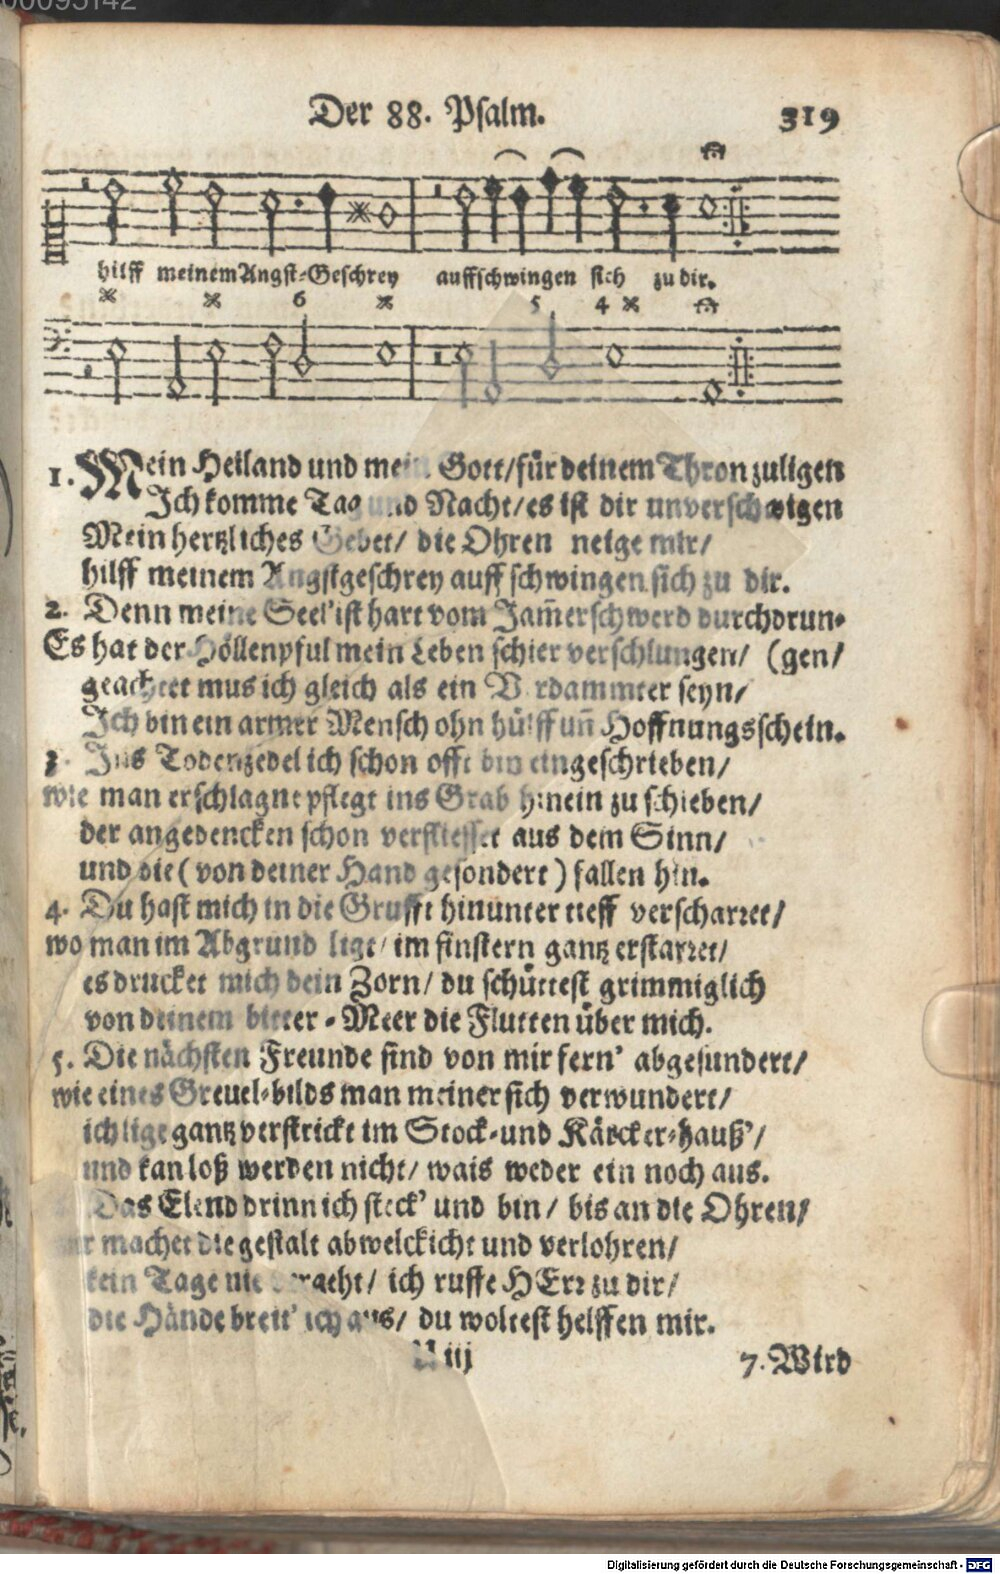 00095142
Der 88. Psalm. 319
hilff meinem Angst-Geschrey auffschwingen sich zu dir.
6 5 4
1. Mein Heiland und mein Gott/für deinem Thron zuligen
Ich komme Tag und Nacht/es ist dir unverschwigen
Mein hertzliches Gebet/ die Ohren neige mir/
hilff meinem Angstgeschrey auff schwingen sich zu dir.
2. Denn meine Seel' ist hart vom Jam̃erschwerd durchdrun-
Es hat der Höllenpful mein Leben schier verschlungen/ (gen/
geachtet mus ich gleich als ein Verdammter seyn/
Ich bin ein armer Mensch ohn hülff uñ Hoffnungsschein.
3. Ins Todenzedel ich schon offt bin eingeschrieben/
wie man erschlagne pflegt ins Grab hinein zu schieben/
der angedencken schon verfliesset aus dem Sinn/
und die ( von deiner Hand gesondert ) fallen hin.
4. Du hast mich in die Grufft hinunter tieff verscharret/
wo man im Abgrund ligt/ im finstern gantz erstarret/
es drucket mich dein Zorn/ du schüttest grimmiglich
von deinem bitter-Meer die Flutten über mich.
5. Die nächsten Freunde sind von mir fern' abgesundert/
wie eines Greuel-bilds man meiner sich verwundert/
ich lige gantz verstrickt im Stock-und Kärcker-hauß'/
und kan loß werden nicht/ wais weder ein noch aus.
Das Elend drinn ich steck' und bin/ bis an die Ohren/
mir machet die gestalt abwelckicht und verlohren/
kein Tage nie ich ruffe HErr zu dir/
die Hände breit' ich aus/ du woltest helffen mir.
iij 7. Wird
Digitalisierung gefördert durch die Deutsche Forschungsgemeinschaft - DFG